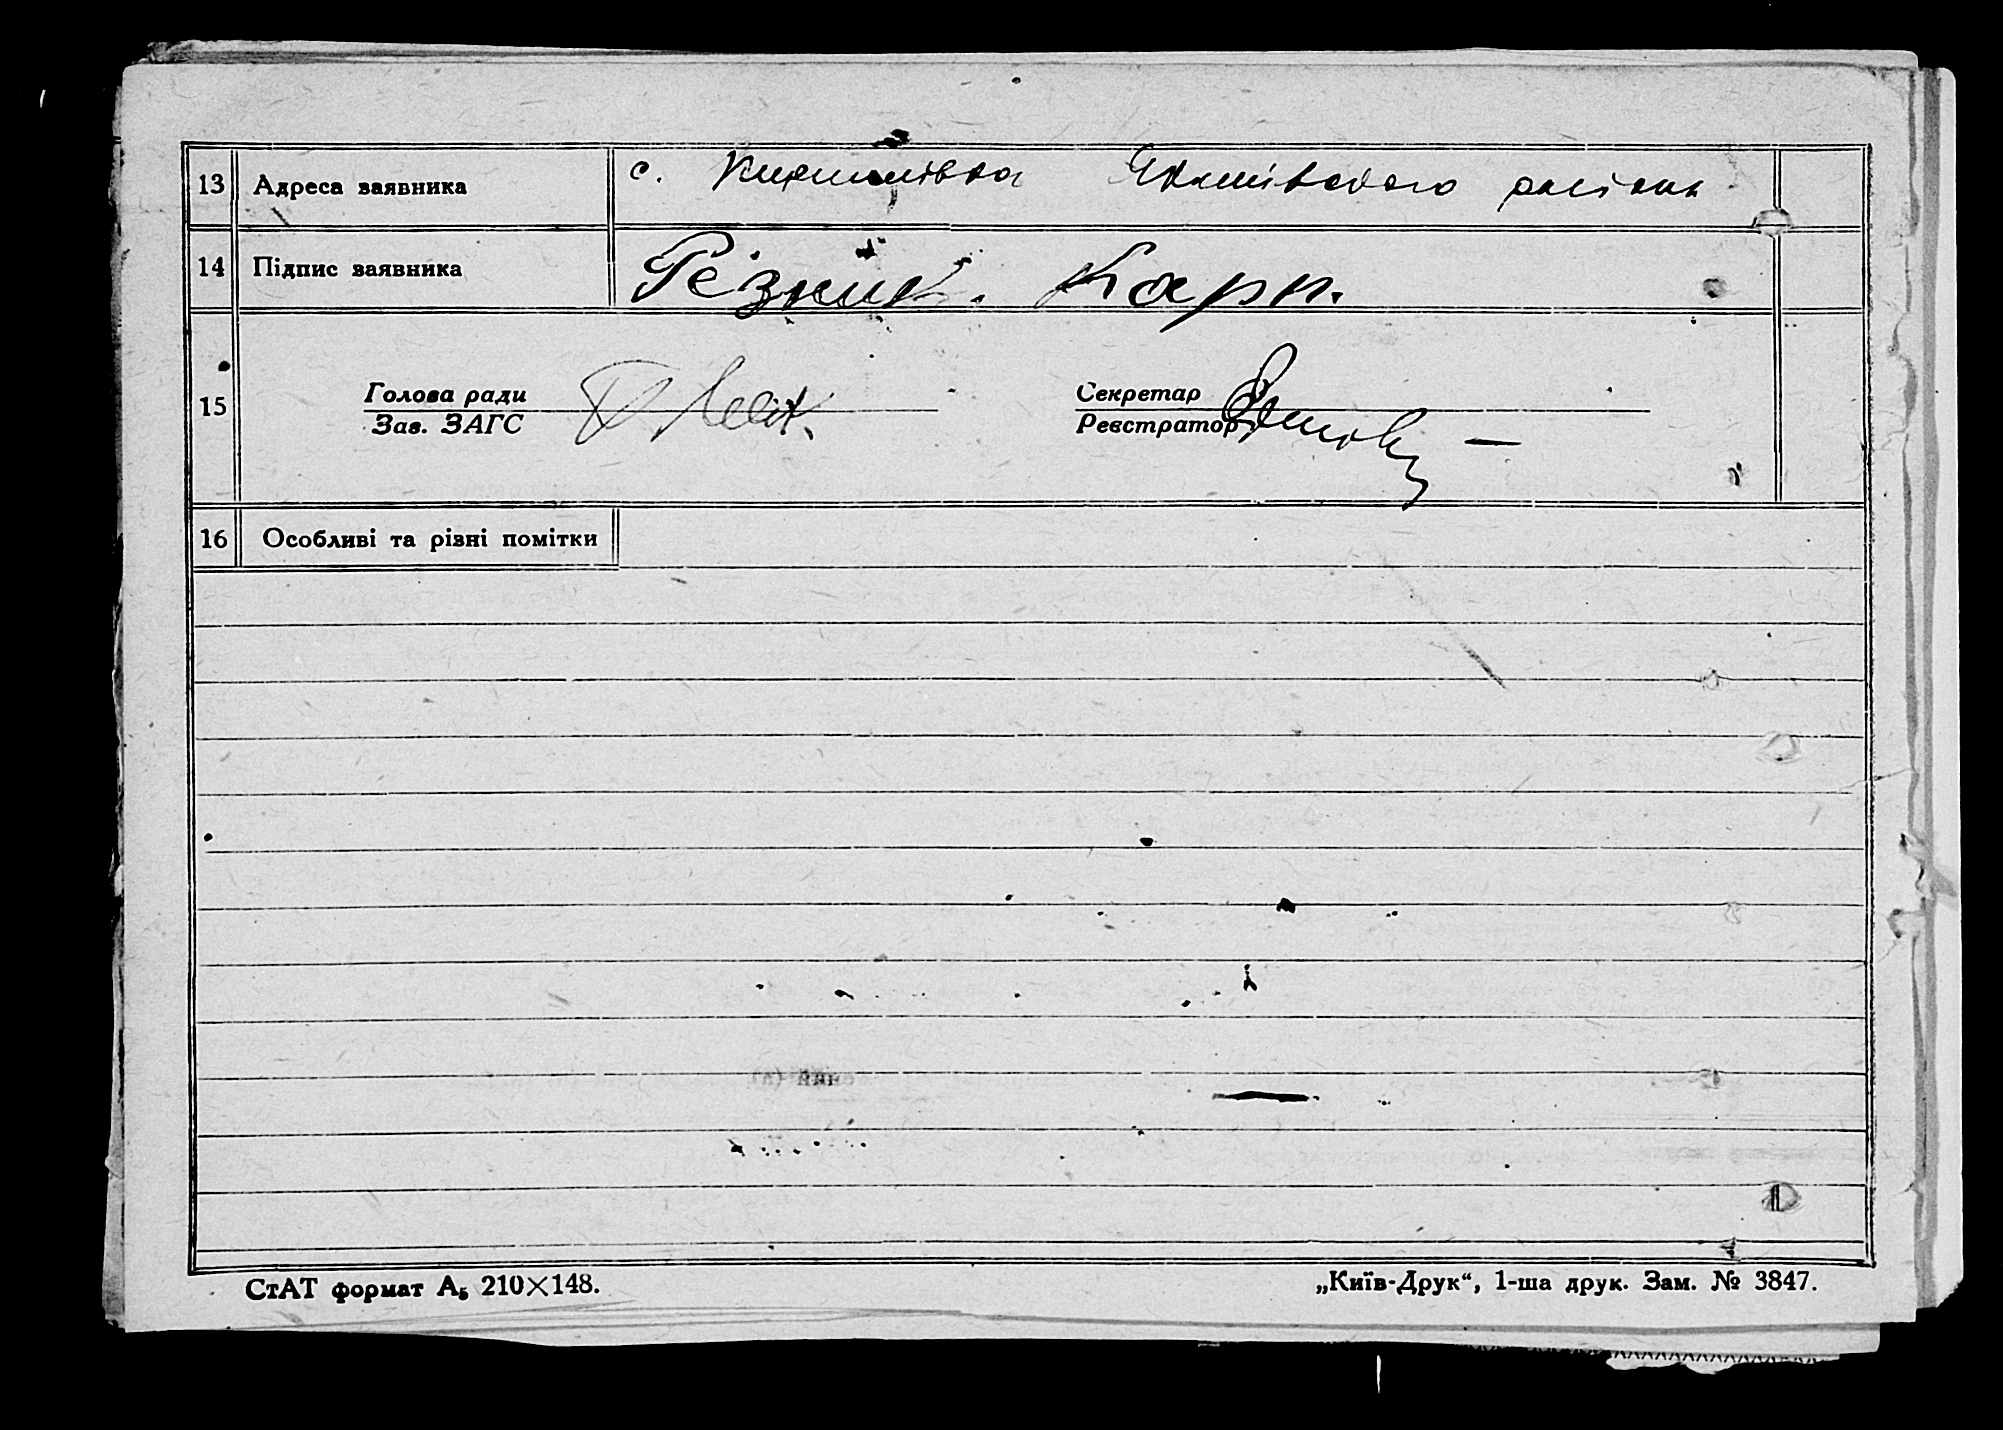 13 Адреса заявника с. Кирилівка Якимівського району
14 Підпис заявника Рєзнік. Карп.
15 Голова ради Секретар
Зав. ЗАГС Реєстратор
16 Особливі та різні помітки
СтАТ формат А₅ 210×148. „Київ-Друк“, 1-ша друк. Зам. № 3847.